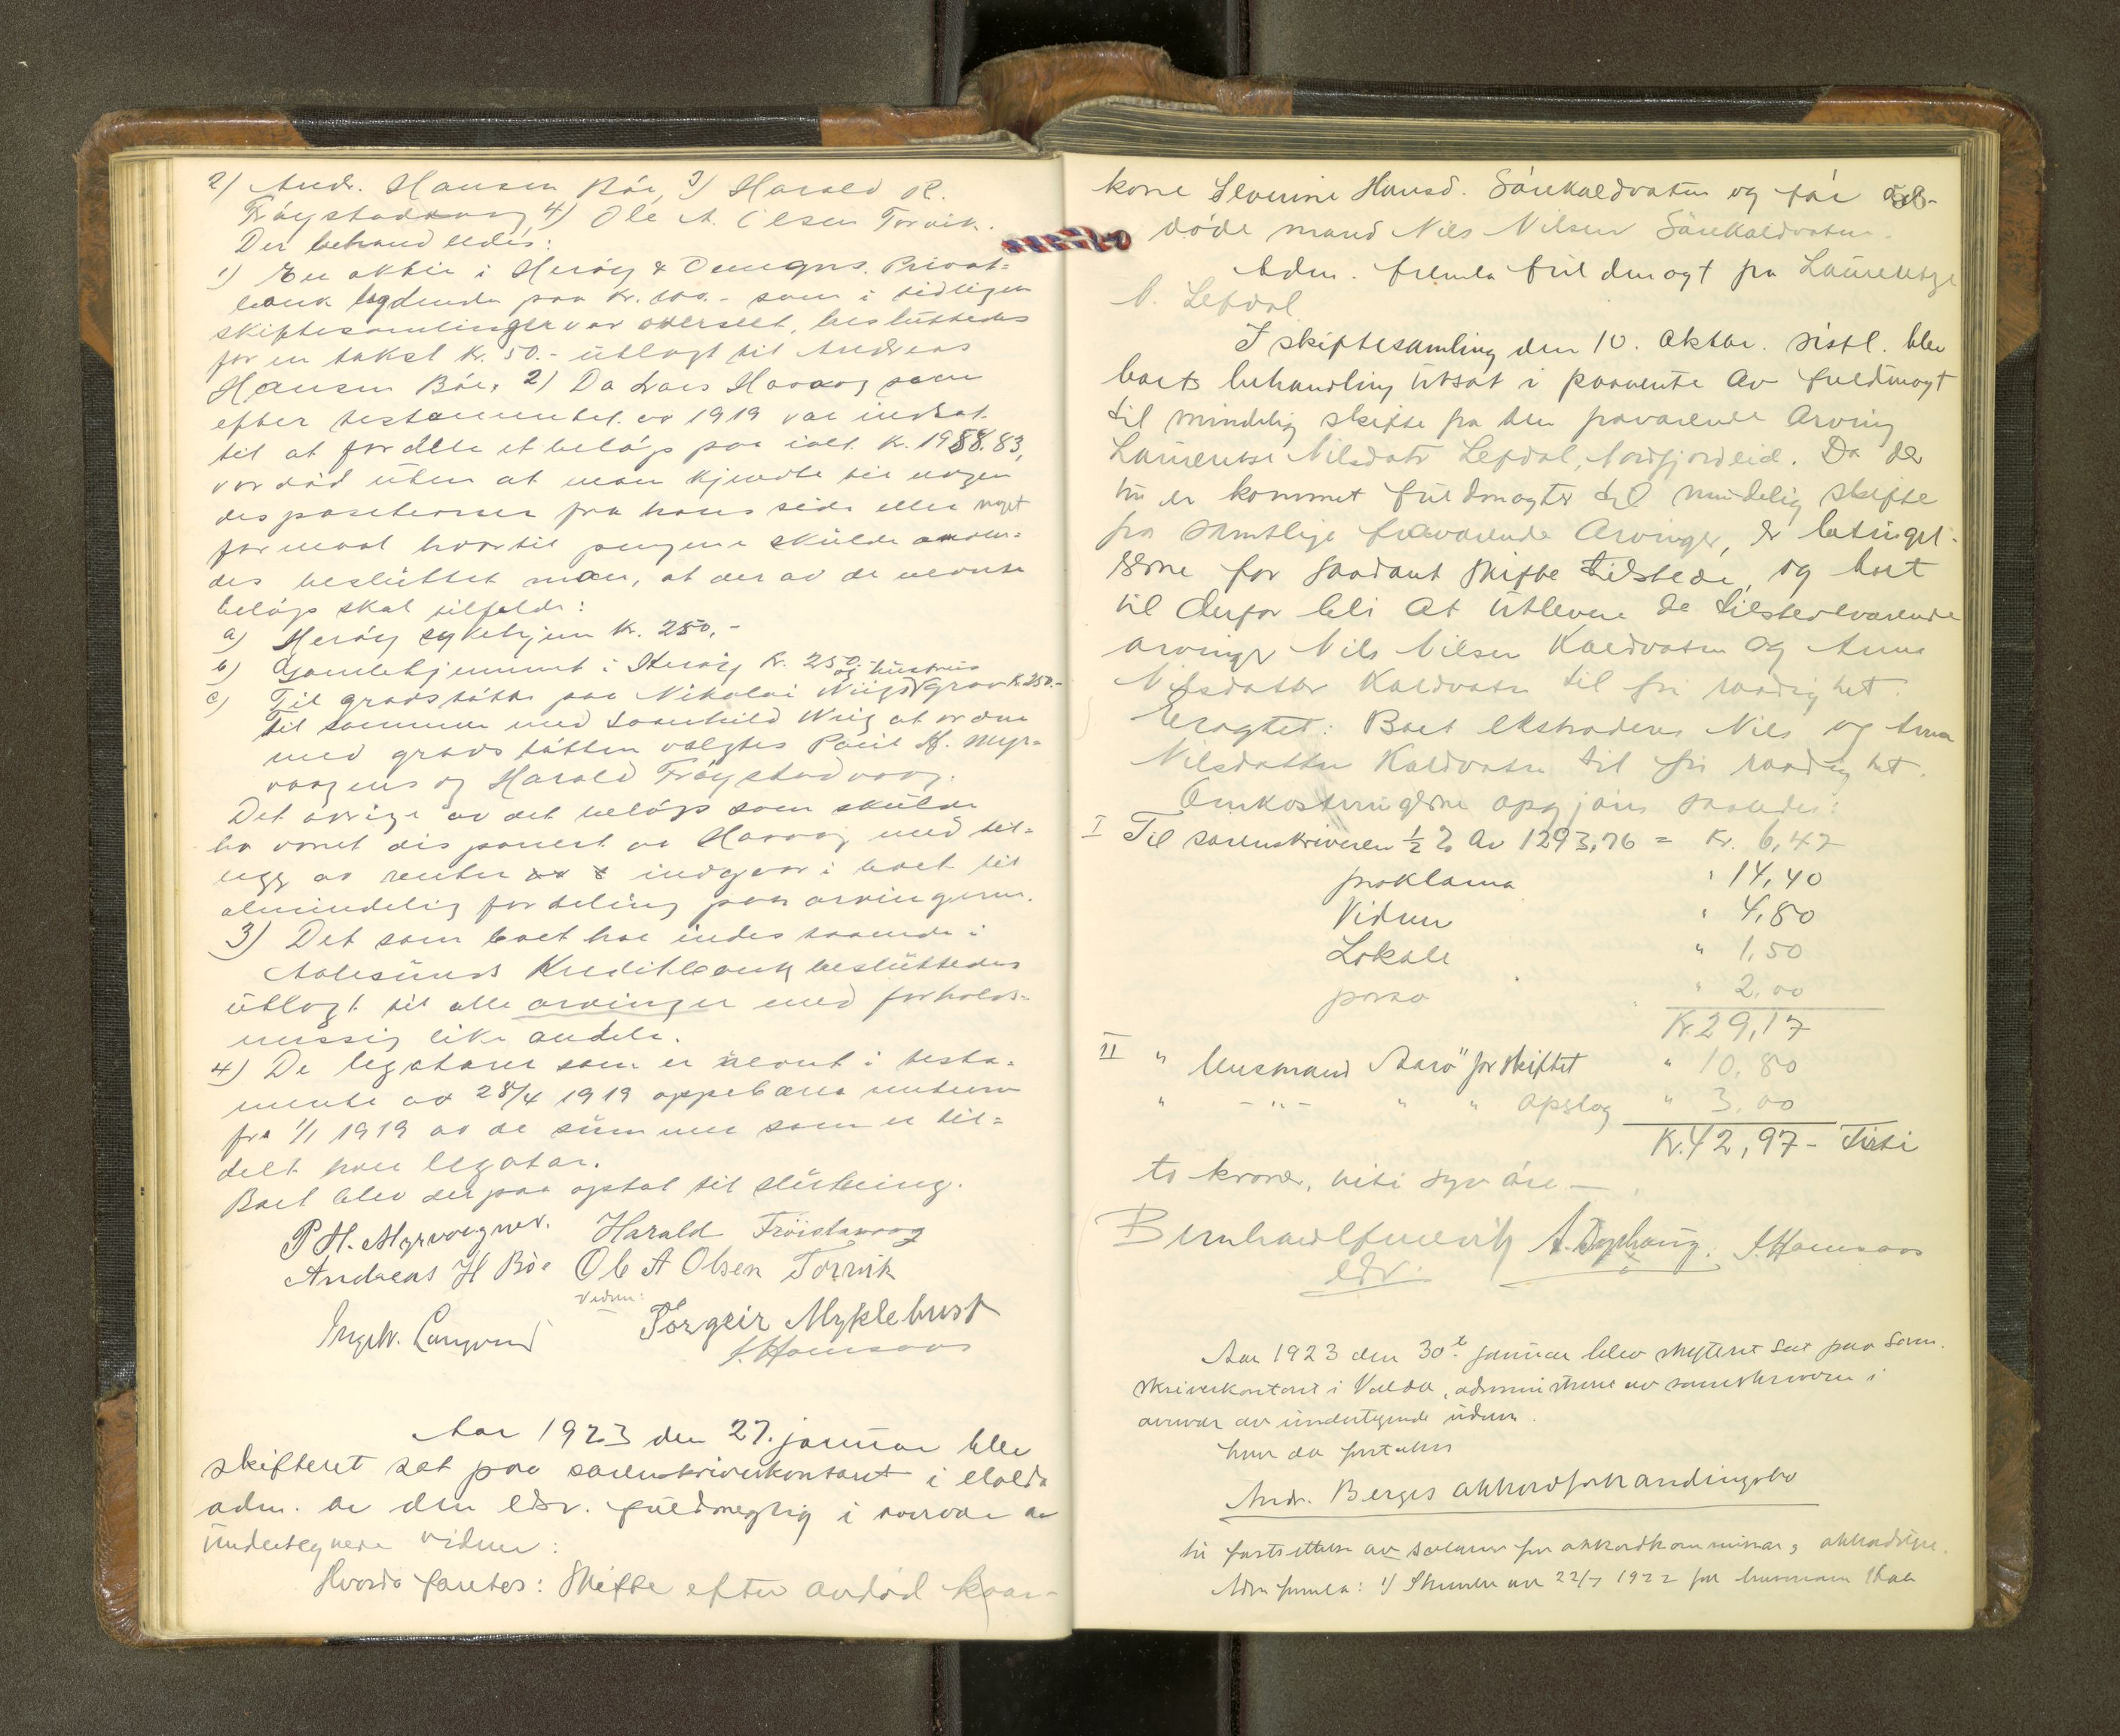 2) Andr. Hansen Böe, 3) Harald R.
Fröystadvaag 4) Ole A. Olsen Torvik.
Der behandledes:
1) En aktie i Heröy & Omegns Privat=
bank lydende paa kr. 100.- som i tidligere
skiftesamlinger var overseet, besluttedes
for en takst kr. 50.- utlagt til Andreas
Hansen Böe. 2) Da Lars Havaag som
efter testamentet av 1919 var indsat
til at fordele et belöp paa ialt kr. 1988.83,
var död uten at man kjendte til nogen
dispositioner fra hans side eller noget
formaal hvortil pengene skulde anven=
des besluttet man, at der av de nevnte
belöp skal tilfalde:
a) Heröy sykehjem kr. 250.-
b) Gamlehjemmet i Heröy kr. 250.-
c) Til gravstötte paa Nikolai Niigs og hustrus grav kr. 250.-
Til sammen med Nriig at ordne
med gravstötten valgtes Paul H. Myr=
vaagnes og Harald Fröystadvaag.
Det övrige av det belöp som skulde
ha vaeret disponert av Havaag med til=
legg av renter indgaar i boet til
almindelig fordeling paa arvingerne.
3) Det som boet har indestaaende i
Aalesunds Kreditbank besluttedes
utlagt til alle arvinger med forholds=
messig like andele.
4) De legatarer som er nevnt i testa=
mente av 28/4 1919 oppebaerer renterne
fra 1/1 1919 av de summer som er til=
delt hver legatar.
Boet blev derpaa optat til slutning.
P H. Myrvaagnes. Harald Fröistadvaag
Andreas H Böe Ole A Olsen Torvik
Vidner:
Ingv. Langvand Torgeir Myklebust
S. Hamsaas
Aar 1923 den 27. januar blev
skifteret sat paa sorenskriverkontoret i Volda
adm. av den edsv. fuldmegtig i overvær av
undertegnede vidner:
Hvorda foretos: Skifte efter avdöd kaar-
kone Severine Hansd. Sörekaldvatn og för av-
döde mand Nils Nilsen Sörekaldvatn.
Adm. fremla fuldmagt fra Laurentse
N. Lefdal
I skiftesamling den 10. oktbr. sistl. blev
boets behandling utsat i paavente av fuldmagt
til mindelig skifte fra den fraværende arving
Laurentse Nilsdatr Lefdal, Nordfjordeid. Da der
nu er kommet fuldmagter til mindelig skifte
fra samtlige fraværende arvinger, er betingel-
serne for saadant skifte tilstede, og boet
til derfor bli at utlevere de tilstedeværende
arvinger Nils Nilsen Kaldvatn og Anna
Nilsdatter Kaldvatn til fri raadighet.
Eragtet: Boet ekstraderes Nils og Anna
Nilsdatter Kaldvatn til fri raadighet.
Omkostningerne opgjöres saaledes:
I Til sorenskriveren ½ % av 1293,76 = Kr. 6,47
proklama " 14,40
Vidner " 4,80
Lokale " 1,50
porto " 2,00
Kr. 29,17
II " lensmand Aarö for skiftet " 10,80
" -"- " " opslag " 3,00
Kr. 42,97 - Firti
to kroner, niti syv öre -
edsv. S. Hamsaas
Aar 1923 den 30t januar blev skifteret sat paa Soren-
skriverkontoret i Volda, administreret av sorenskriveren i
overvær av undertegnede vidner.
hvor da foretokes
Andr. Berges akkordforhandlingsbo
til fastsettelse av salærer for akkordkommissær,
Adm fremla: 1) Skrivelse av 22/7 1922 fra